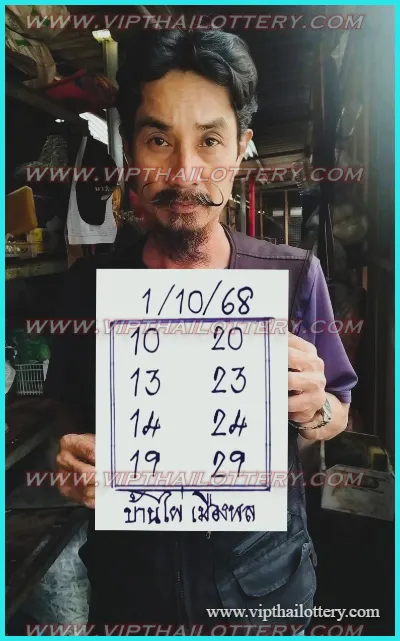 WWW.VIPTHAILOTTERY.COM
WWW.VIPTHAILOTTERY.COM
1/10/68
WWW.VIPTHAILOTTERY.COM
10 20
13 23
14 24
19 29
WWW.VIPTHAILOTTERY.COM
บ้านไผ่ เมืองพล
www.vipthailottery.com
WWW.VIPTHAILOTTERY.COM